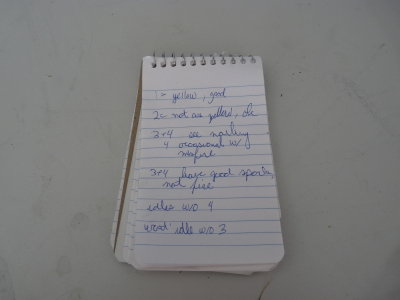 1 = yellow, good
2 = not as yellow, ok
3+4 see nothing
4 occasional w/
misfire
3+4 have good spark,
not fire
idles w/o 4
won't idle w/o 3